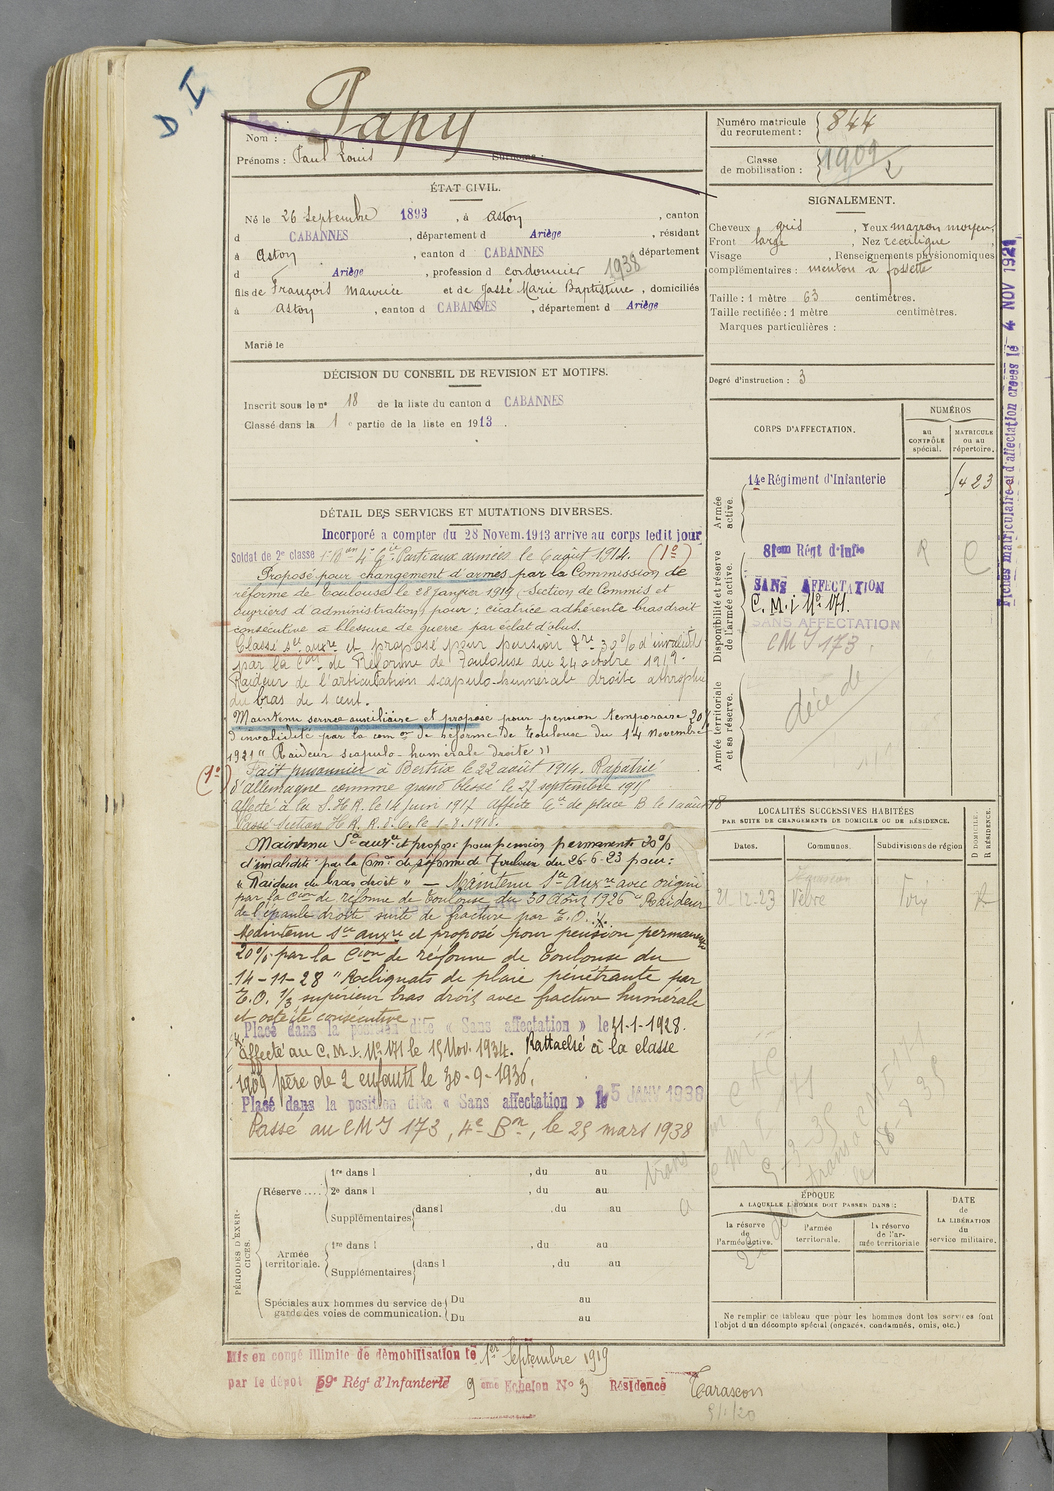 D I
Nom : Papy
Prénoms : Paul Louis Surnoms :
ÉTAT CIVIL.
Né le 26 Septembre 1893, à Aston, canton
d CABANNES, département d Ariège, résident
à Aston, canton d CABANNES département
d Ariège, profession d cordonnier 1938
fils de François Maurice et de Jassé Marie Baptistine, domiciliés
à Aston, canton d CABANNES, département d Ariège
Marié le
DÉCISION DU CONSEIL DE REVISION ET MOTIFS.
Inscrit sous le nº 18 de la liste du canton d CABANNES
Classé dans la 1 e partie de la liste en 1913.
DÉTAIL DES SERVICES ET MUTATIONS DIVERSES.
Incorporé a compter du 28 Novem. 1913 arrive au corps ledit jour
Soldat de 2e classe Parti aux armées le 6 août 1914. (1º)
Proposé pour changement d'armes par la Commission de
réforme de Toulouse le 28 janvier 1919 (Section de Commis et
Ouvriers d'administration) pour : cicatrice adhérente bras droit
consécutive à blessure de guerre par éclat d'obus.
Classé sce auxre et proposé pour pension 30% d'invalidité
par la Con de Réforme de Toulouse du 24 octobre 1919.
Raideur de l'articulation scapulo-humérale droite atrophie
du bras de 1 cent.
Maintenu service auxiliaire et proposé pour pension temporaire 20%
d'invalidité par la com on de réforme de Toulouse du 14 novembre
1921 "Raideur scapulo-humérale droite"
(1º) Fait prisonnier à Bertrix le 22 août 1914. Rapatrié
d'Allemagne comme grand blessé le 27 septembre 1915
affecté à la S.H.R. le 14 juin 1917 affecté de place B le 1 août 18
Passé Section H.R. le 1.8.1918.
Maintenu Sce auxre et proposé pour pension permanente 30%
d'invalidité par la Com on de réforme de Toulouse du 26-6-23 pour :
"Raideur du bras droit" — Maintenu Sce Auxre avec origine
par la Con de réforme de Toulouse du 30 Août 1926 "Raideur
de l'épaule droite suite de fracture par E.O.
Maintenu Sce auxre et proposé pour pension permanente
20% par la Cion de réforme de Toulouse du
14-11-28 "Reliquats de plaie pénétrante par
E.O. 1/3 supérieur bras droit avec fracture humérale
et ostéite consécutive
Placé dans la position dite « Sans affectation » le 11-1-1928.
Affecté au C.M.I. Nº 171 le 15 Nov. 1934. Rattaché à la classe
1909 père de 2 enfants le 30-9-1936.
Placé dans la position dite « Sans affectation » le 15 JANV 1938
Passé au CMI 173, 4e Bon, le 25 mars 1938
PÉRIODES D'EXERCICES.
Réserve....
1re dans l , du au
2e dans l , du au
Supplémentaires dans l , du au
Armée territoriale.
1re dans l , du au
Supplémentaires dans l , du au
Spéciales aux hommes du service de garde des voies de communication.
Du au
Du au
Mis en congé illimité de démobilisation le 1er Septembre 1919
par le dépôt 59e Régt d'Infanterie 9 eme Echelon Nº 3 Résidence Tarascon
Numéro matricule du recrutement : 844
Classe de mobilisation : 1909
SIGNALEMENT.
Cheveux gris, Yeux marron moyen,
Front large, Nez rectiligne,
Visage , Renseignements physionomiques
complémentaires : menton à fossette
Taille : 1 mètre 63 centimètres.
Taille rectifiée : 1 mètre centimètres.
Marques particulières :
Degré d'instruction : 3
CORPS D'AFFECTATION.
NUMÉROS
au CONTRÔLE spécial.
MATRICULE ou au répertoire.
Armée active.
14e Régiment d'Infanterie 1423
Disponibilité et réserve de l'armée active.
81eme Régt d'Infie R C
SANS AFFECTATION
C.M.I Nº 171.
SANS AFFECTATION
CMI 173.
Armée territoriale et sa réserve.
décédé
Fiches matriculaire et d'affectation créées le 4 NOV 1921
LOCALITÉS SUCCESSIVES HABITÉES
PAR SUITE DE CHANGEMENTS DE DOMICILE OU DE RÉSIDENCE.
Dates. Communes. Subdivisions de région
D DOMICILE. R RÉSIDENCE.
21-12-23 Vèbre Foix R
ÉPOQUE
A LAQUELLE L'HOMME DOIT PASSER DANS :
la réserve de l'armée active.
l'armée territoriale.
la réserve de l'armée territoriale
DATE de LA LIBÉRATION du service militaire.
Ne remplir ce tableau que pour les hommes dont les services font
l'objet d'un décompte spécial (engagés, condamnés, omis, etc.)